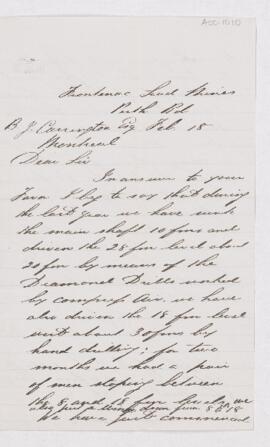 Frontenac Lead Mines
Perth Rd
B. J. Carrington Esq Feb. 18
Montreal
Dear Sir
In answer to your
favor I beg to say that during
the last year we have sunk
the main shaft 10 fms and
driven the 28 fm level about
20 fm by means of the
Diamond Drills worked
by compress air. we have
also driven the 18 fm level
west about 30 fms by
hand drilling. for two
months we had a pair
of men stoping between
the 8 and 18 fm levels we
also put a down from 8 to 18
We have just commenced